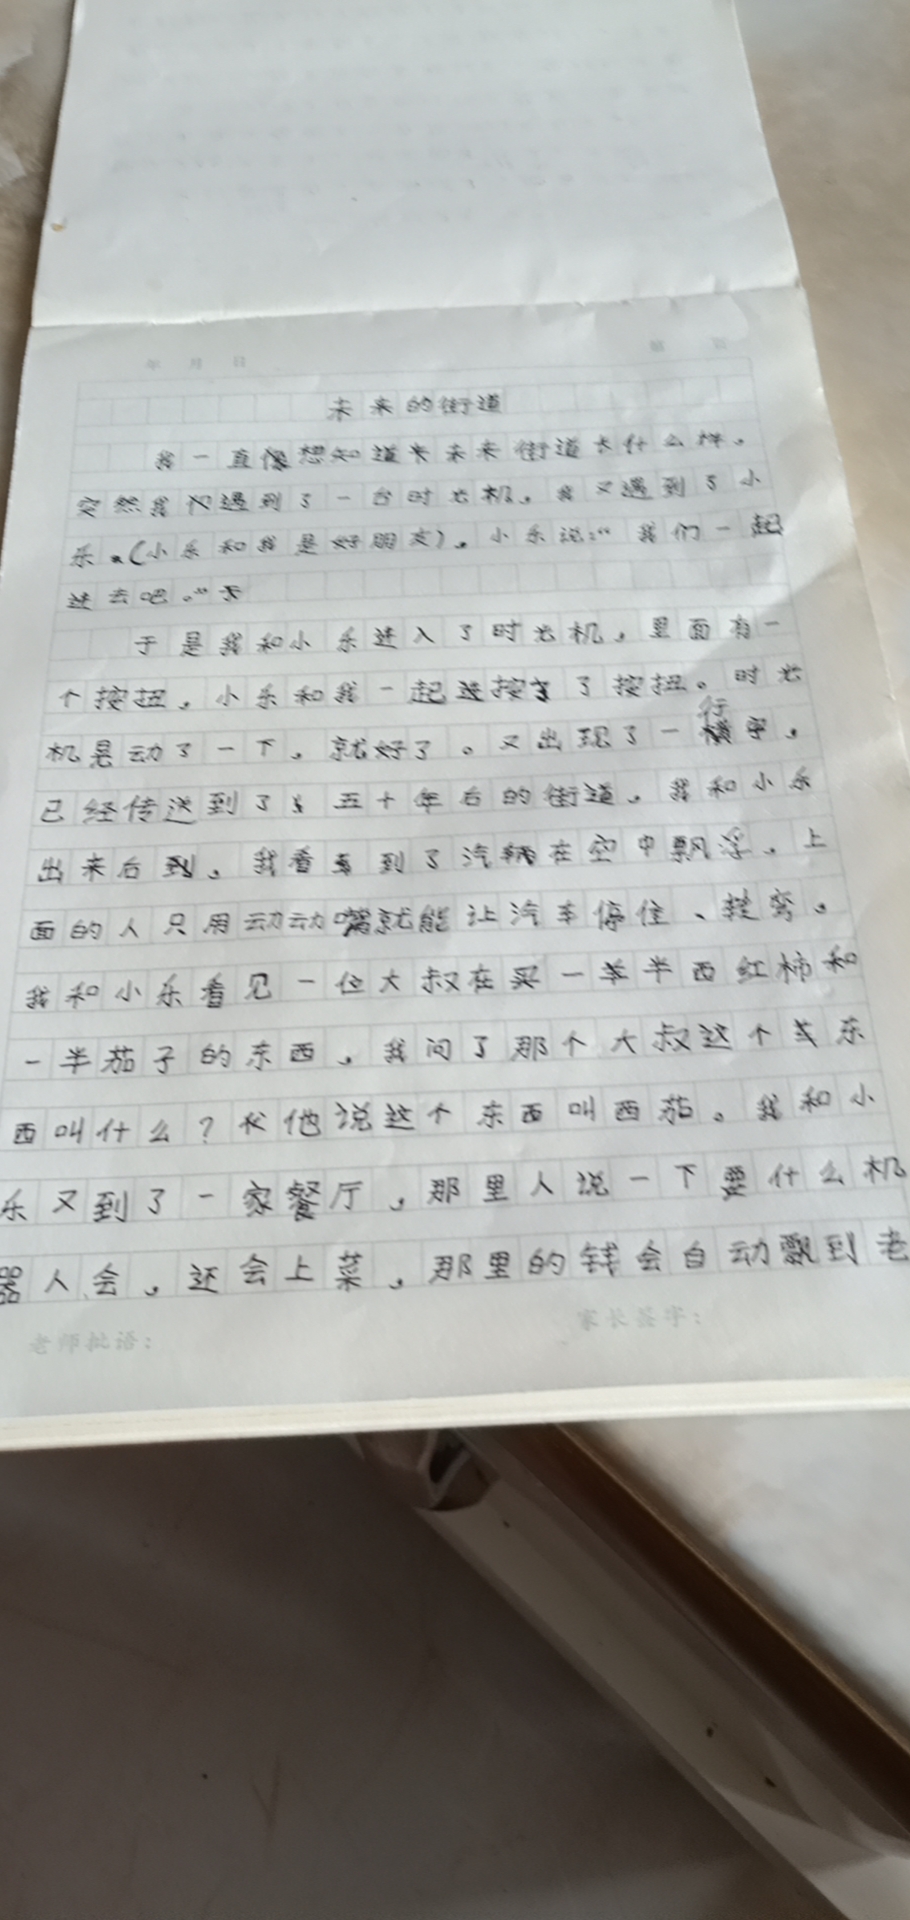 年 月 日 第 页
未来的街道
我一直想知道未来街道长什么样。
突然我遇到了一台时光机，我又遇到了小
乐。（小乐和我是好朋友）。小乐说：“我们一起
进去吧。”
于是我和小乐进入了时光机，里面有一
个按扭，小乐和我一起按了按扭。时光
机晃动了一下，就好了。又出现了一行字，
已经传送到了五十年后的街道，我和小乐
出来后，我看到了汽车在空中飘浮，上
面的人只用动动嘴就能让汽车停住、转弯。
我和小乐看见一位大叔在买一半西红柿和
一半茄子的东西，我问了那个大叔这个东
西叫什么？他说这个东西叫西茄。我和小
乐又到了一家餐厅，那里人说一下要什么机
器人会，还会上菜，那里的钱会自动飘到老
老师批语： 家长签字：